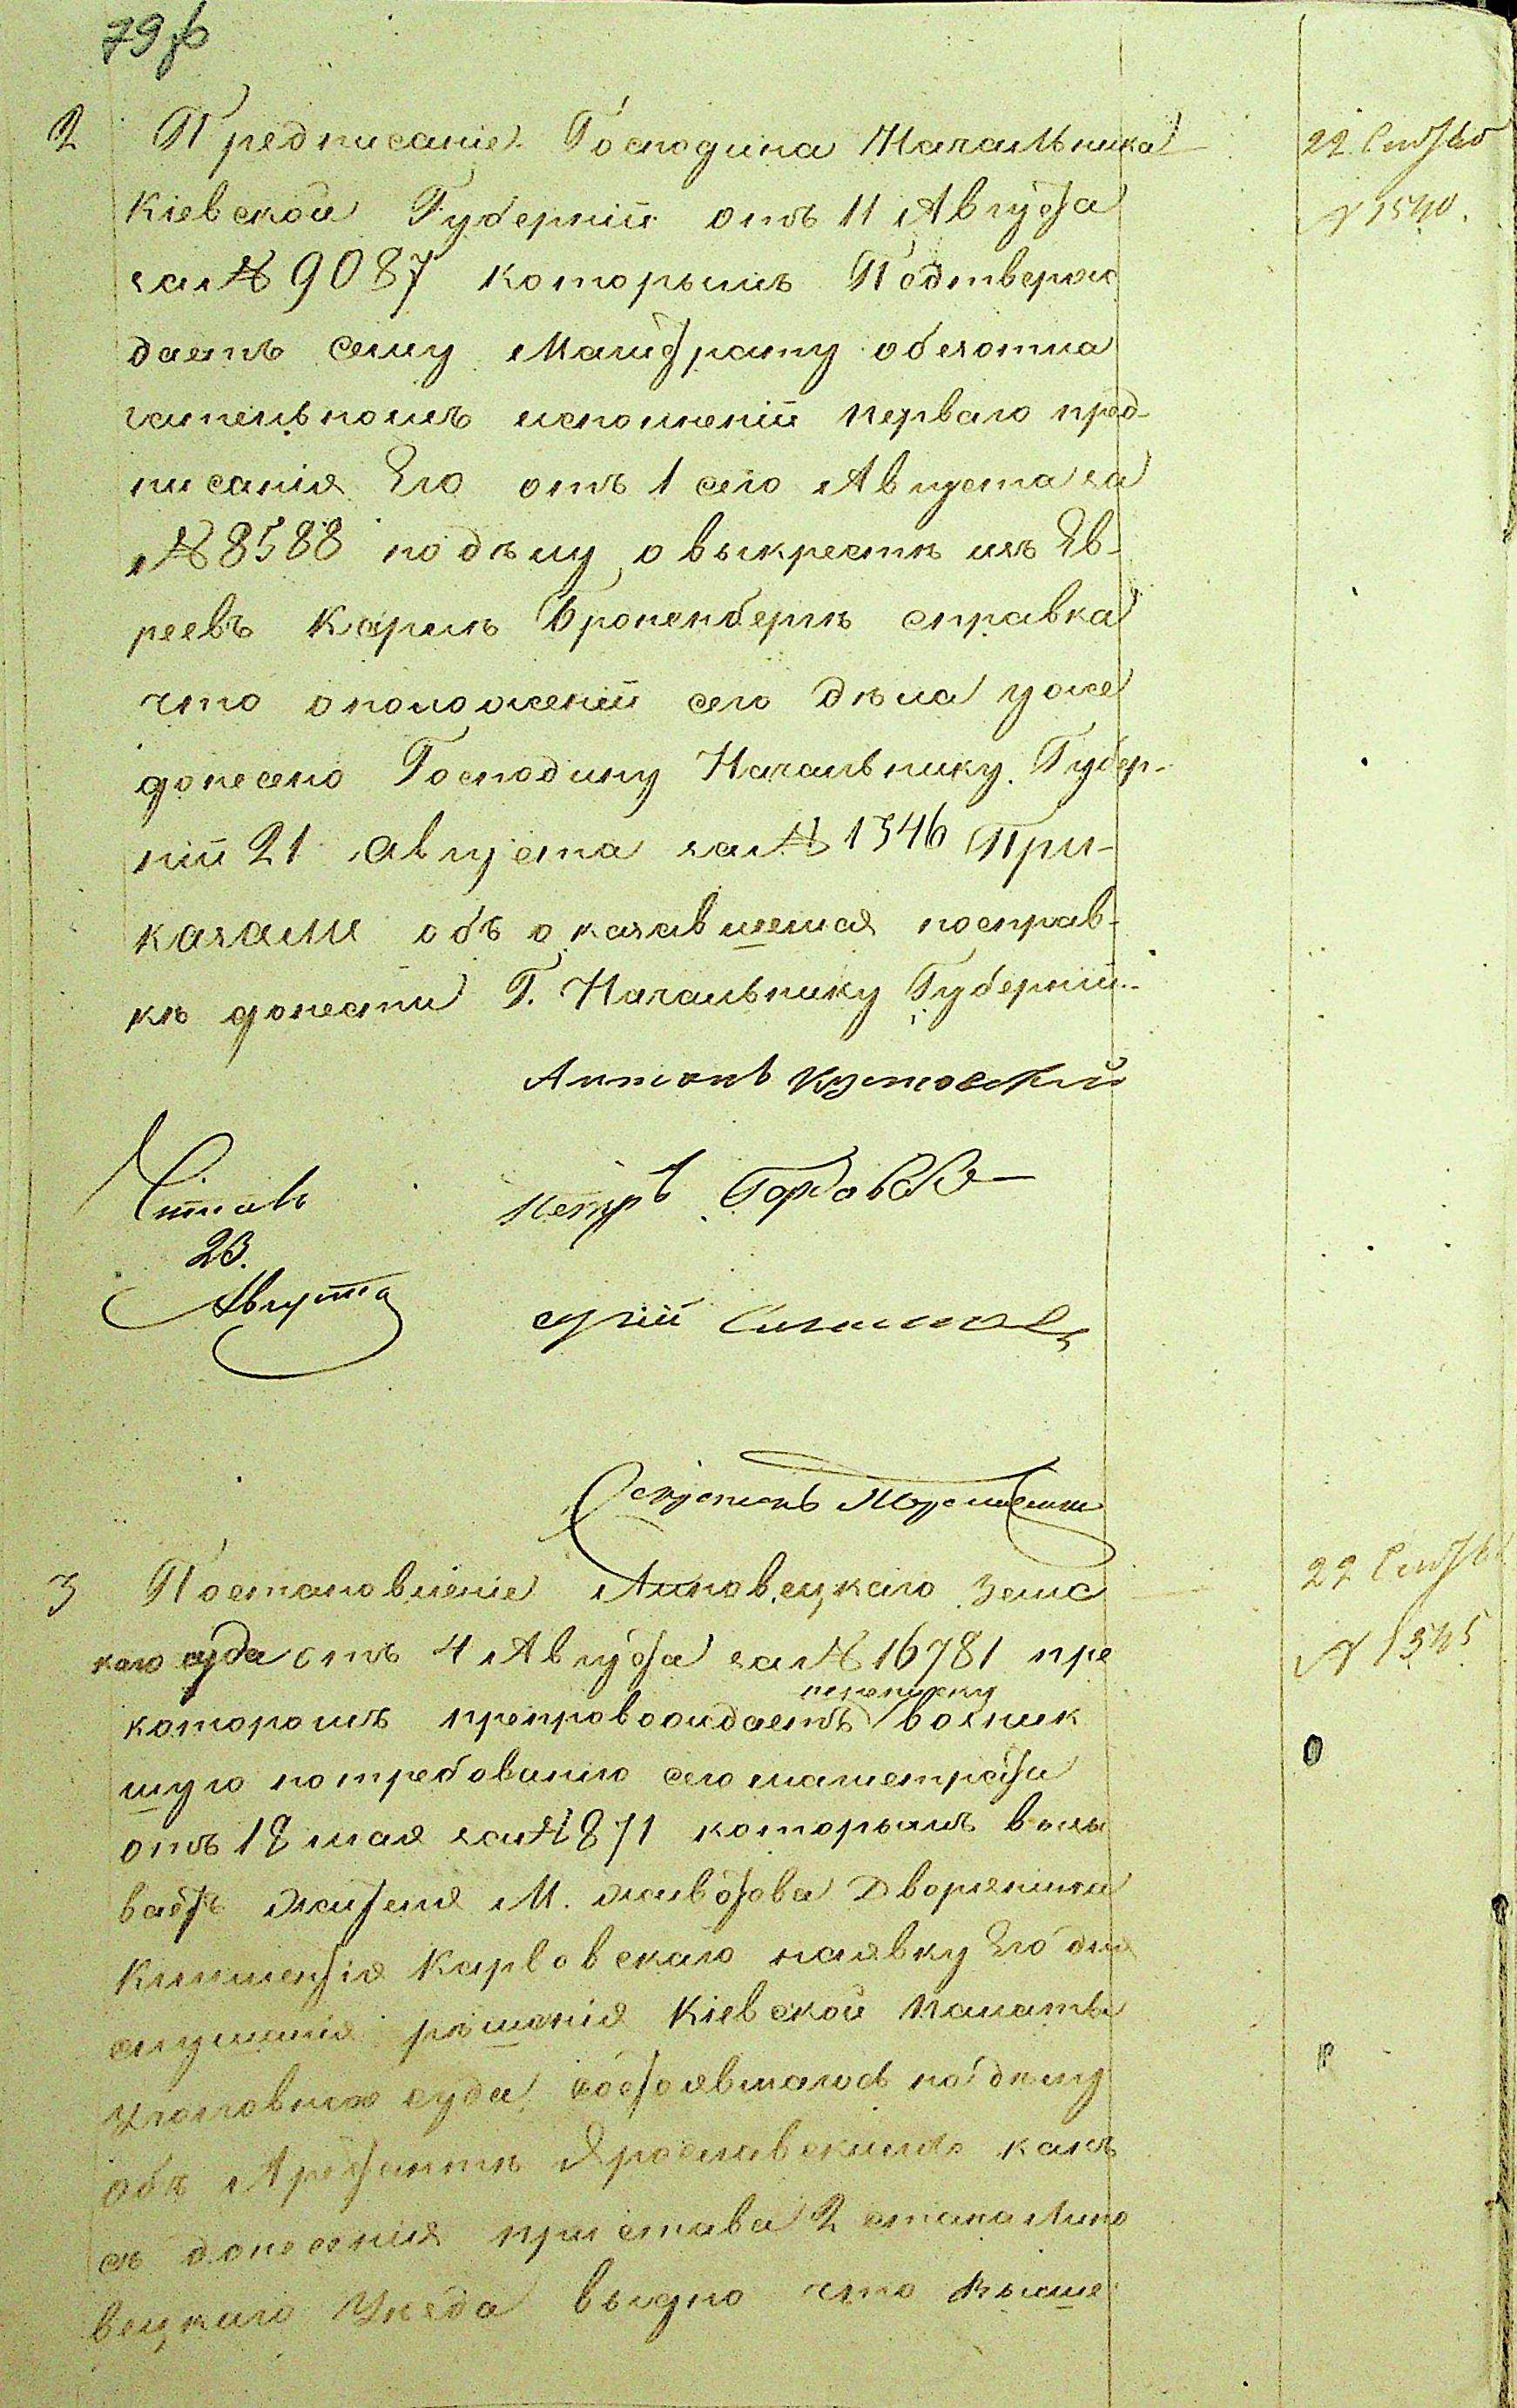 79
2 Предписаніе Господина Начальника
Кіевской Губерніи отъ 11 Августа
за № 9087 которымъ Подтверж
даетъ сему Магистрату обезотла
гательномъ исполненіи перваго пред-
писанія Его отъ 1 сего Августа за
№ 8588 по дѣлу о выкрестѣ изъ Ев-
реевъ Карлѣ Броненбергѣ справка
что о положеніи сего дѣла уже
донесено Господину Начальнику Губер-
ніи 21 Августа за № 1346 При-
казали объ оказавшемся посправ-
кѣ донести Г. Начальнику Губерніи
22 Снтбр
№ 1540.
Антонъ
Петръ
Читалъ
23.
Августа
Секретарь
3 Постановленіе Липовецкаго Земс
каго суда отъ 4 Августа за № 16781 при
переписку
которомъ препровождаетъ возник
шую по требованію сего магистрата
отъ 18 мая за № 871 которымъ вызы
ваетъ жителя М. Животова Дворянина
Климентія Карловскаго на явку Его для
слушанія рѣшенія Кіевской Палаты
Уголовнаго суда состоявшагося по дѣлу
объ Арестантѣ Ярославскимъ какъ
съ донесенія пристава 2 стана Липо
вецкаго Уѣзда выдно что
22 Снтбр
№ 1545